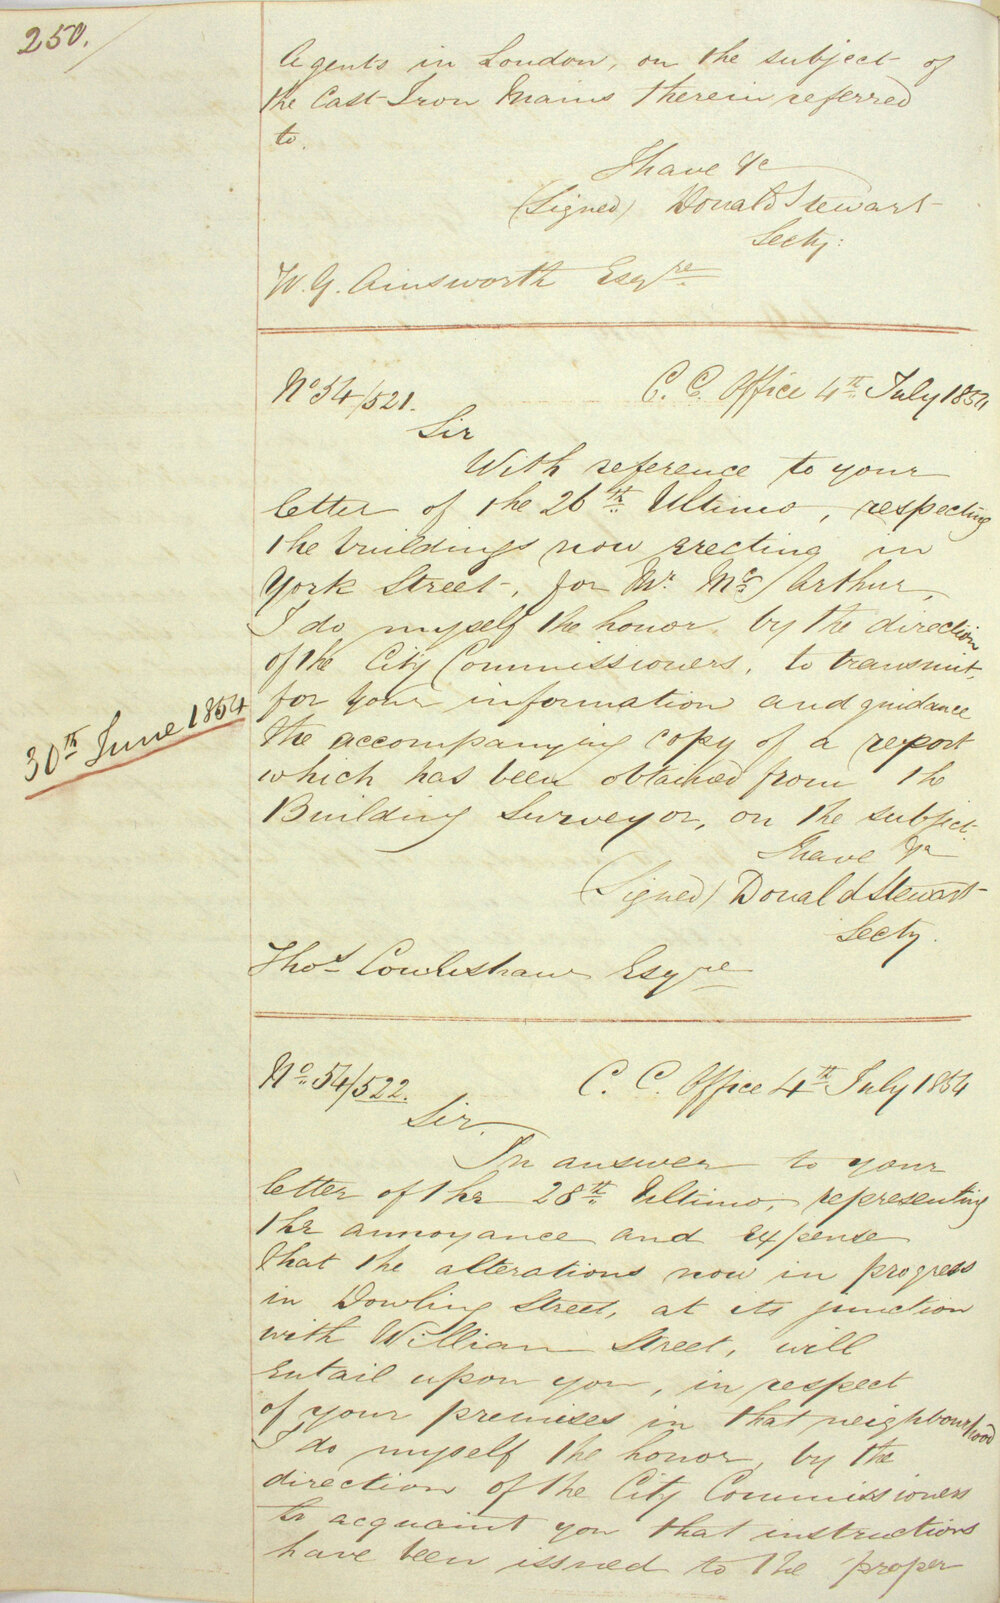 250.
Agents in London, on the subject of
the Cast Iron Mains therein referred
to.
I have &c
(Signed) Donald Stewart
Secty:
W. G. Ainsworth Esqre
No 54/521.
C. C. Office 4th July 1854
Sir
With reference to your
letter of the 26th Ultimo, respecting
the buildings now erecting in
York Street, for Mr. McArthur,
I do myself the honor, by the direction
of the City Commissioners, to transmit,
for your information and guidance
30th June 1854
the accompanying copy of a report
which has been obtained from the
Building Surveyor, on the subject.
I have &c
(Signed) Donald Stewart
Secty.
Thos Cowlishaw Esqre
No. 54/522.
C. C. Office 4th July 1854
Sir.
In answer to your
letter of the 28th Ultimo, representing
the annoyance and expense
that the alterations now in progress
in Dowling Street, at its junction
with William Street, will
entail upon you, in respect
of your premises in that neighbourhood
I do myself the honor, by the
direction of the City Commissioners
to acquaint you that instructions
have been issued to the proper